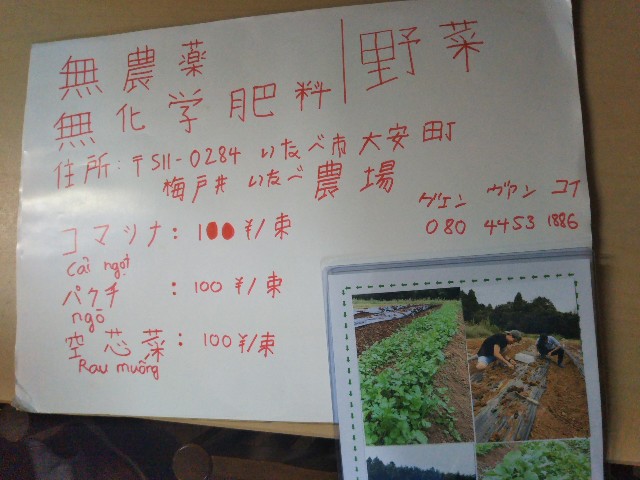 無農薬
無化学肥料 | 野菜
住所: 〒511-0284 いなべ市大安町
梅戸井 いなべ農場
グエン ヴァン コイ
080 4453 1886
コマツナ: 100¥/束
Cải ngọt
パクチ : 100¥/束
ngò
空芯菜: 100¥/束
Rau muống